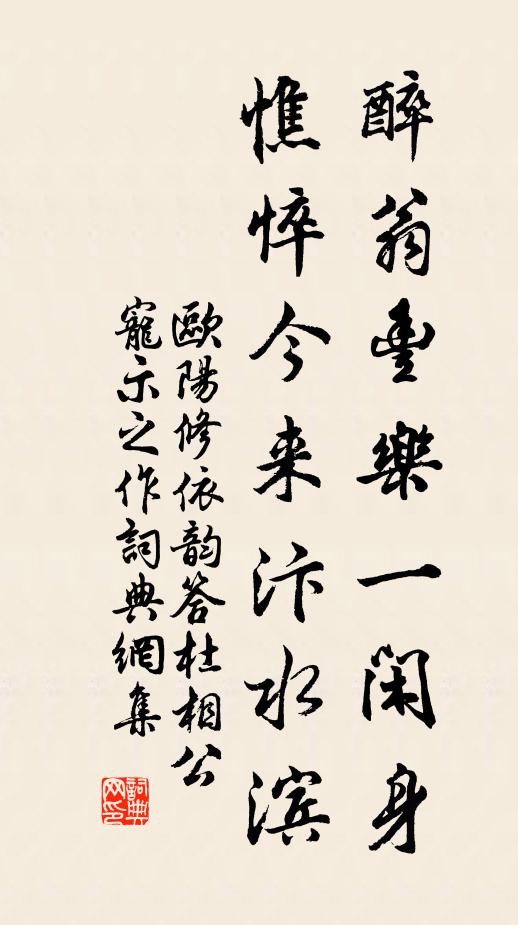 醉翁豐樂一閑身
憔悴今来汴水滨
歐陽修依韵答杜相公
寵示之作詞典網集
詞典
网印